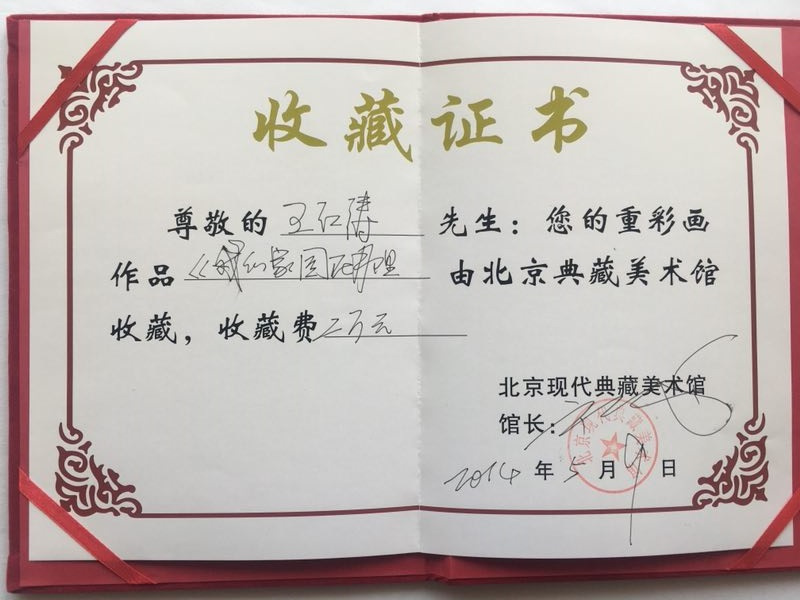 收藏证书
尊敬的 王仁涛 先生：您的重彩画
作品《 家园 由北京典藏美术馆
收藏，收藏费二万元
北京现代典藏美术馆
馆长：
北京现代典藏美术馆
2014年5月9日